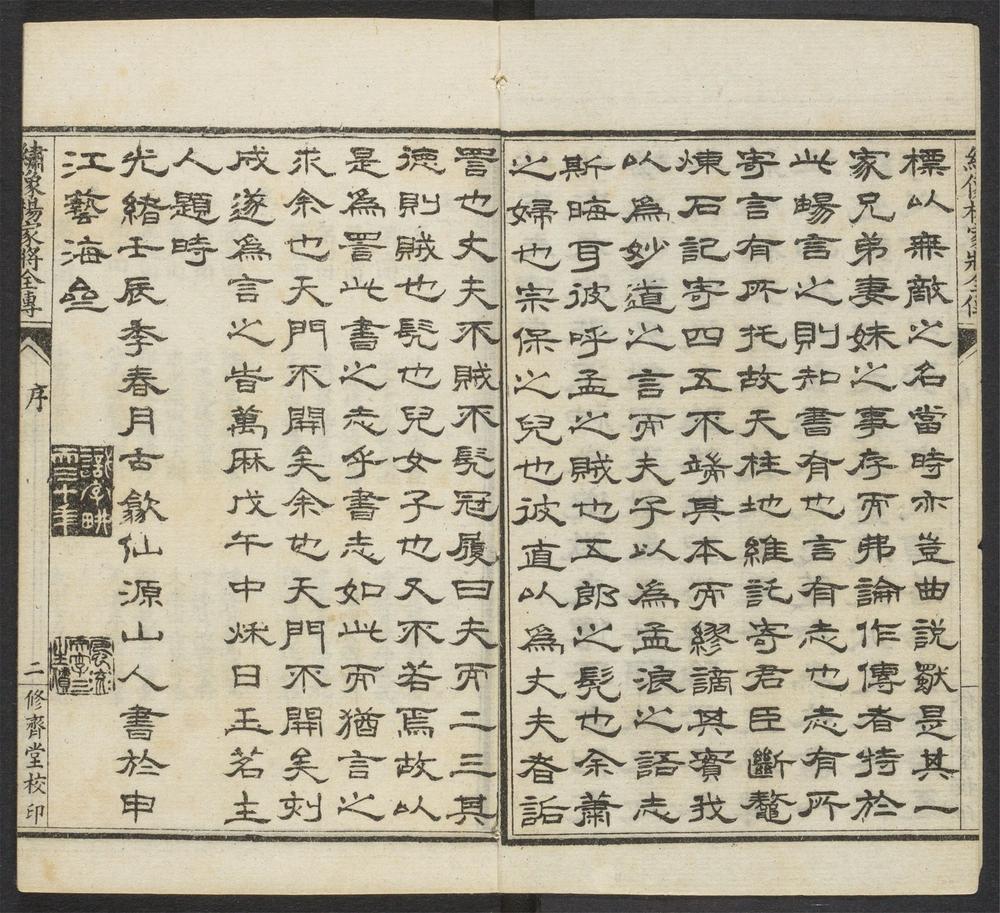 繡像楊家將全傳
標以無敵之名當時亦豈曲說歟是其一
家兄弟妻妹之事存而弗論作傳者特於
此暢言之則知書有也言有志也志有所
寄言有所托故天柱地維託寄君臣斷鼇
煉石記寄四五不端其本而繆謫其實我
以為妙道之言而夫子以為孟浪之語志
斯晦耳彼呼孟之賊也五郎之髡也余蕭
之婦也宗保之兒也彼直以為丈夫者詬
詈也丈夫不賊不髡冠履曰夫而二三其
德則賊也髡也兒女子也又不若焉故以
是為詈此書之志乎書志如此而猶言之
求余也天門不開矣余也天門不開矣刻
成遂為言之皆萬厤戊午中秌日玉茗主
人題時
光緒壬辰季春月古歙仙源山人書於申
江藝海壘
繡像楊家將全傳
序
二
修齊堂校印